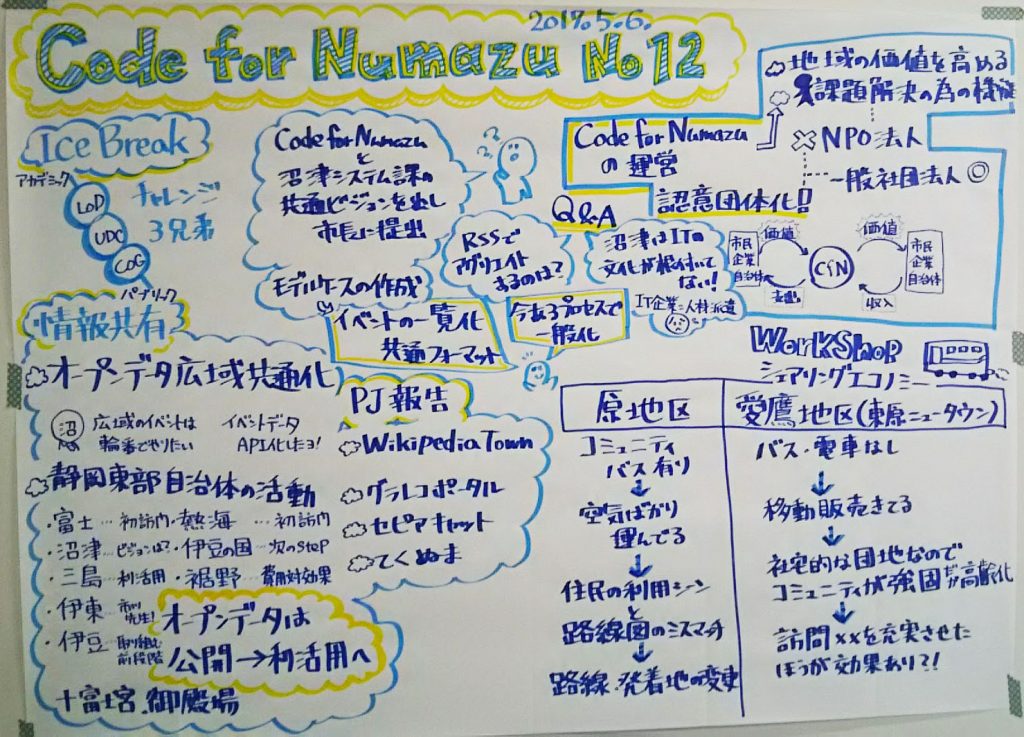 2017.5.6.
Code for Numazu No12
Ice Break
アカデミック
LOD
UDC
CoG
チャレンジ
3兄弟
Code for Numazu
と
沼津システム課の
共通ビジョンを出し
市長に提出
モデルケースの作成
イベントの一覧化
共通フォーマット
RSSで
アグリゲイト
するのは?
今ある プロセスで
一般化
Q&A
沼津はITの
文化が根付いて
ない!
IT企業=人材派遣
Code for Numazu
の運営
認意団体化!!
地域の価値を高める
課題解決の為の機能
NPO法人
一般社団法人◎
市民
企業
自治体
価値
支出
CfN
価値
収入
市民
企業
自治体
パブリック
情報共有
オープンデータ広域共通化
沼
広域のイベントは
輪番でやりたい
イベントデータ
API化したヨ!
静岡東部自治体の活動
・富士…初訪内
・熱海…初訪内
・沼津…ビジョンは?
・伊豆の国…次のstep
・三島…利活用
・裾野…費用対効果
・伊東…市川先生!
・伊豆…取り組む前段階
オープンデータは
公開→利活用へ
+富士宮、御殿場
PJ報告
Wikipedia Town
グラレコポータル
セピアキャット
てくぬま
Workshop
シェアリングエコノミー
原地区
コミュニティ
バス有り
↓
空気ばかり
運んでる
↓
住民の利用シーン
と
路線図のミスマッチ
↓
路線、発着地の変更
愛鷹地区(東原ニュータウン)
バス・電車なし
↓
移動販売きてる
↓
社宅的な団地なので
コミュニティが強固だが高齢化
↓
訪問××を充実させた
ほうが効果あり?!